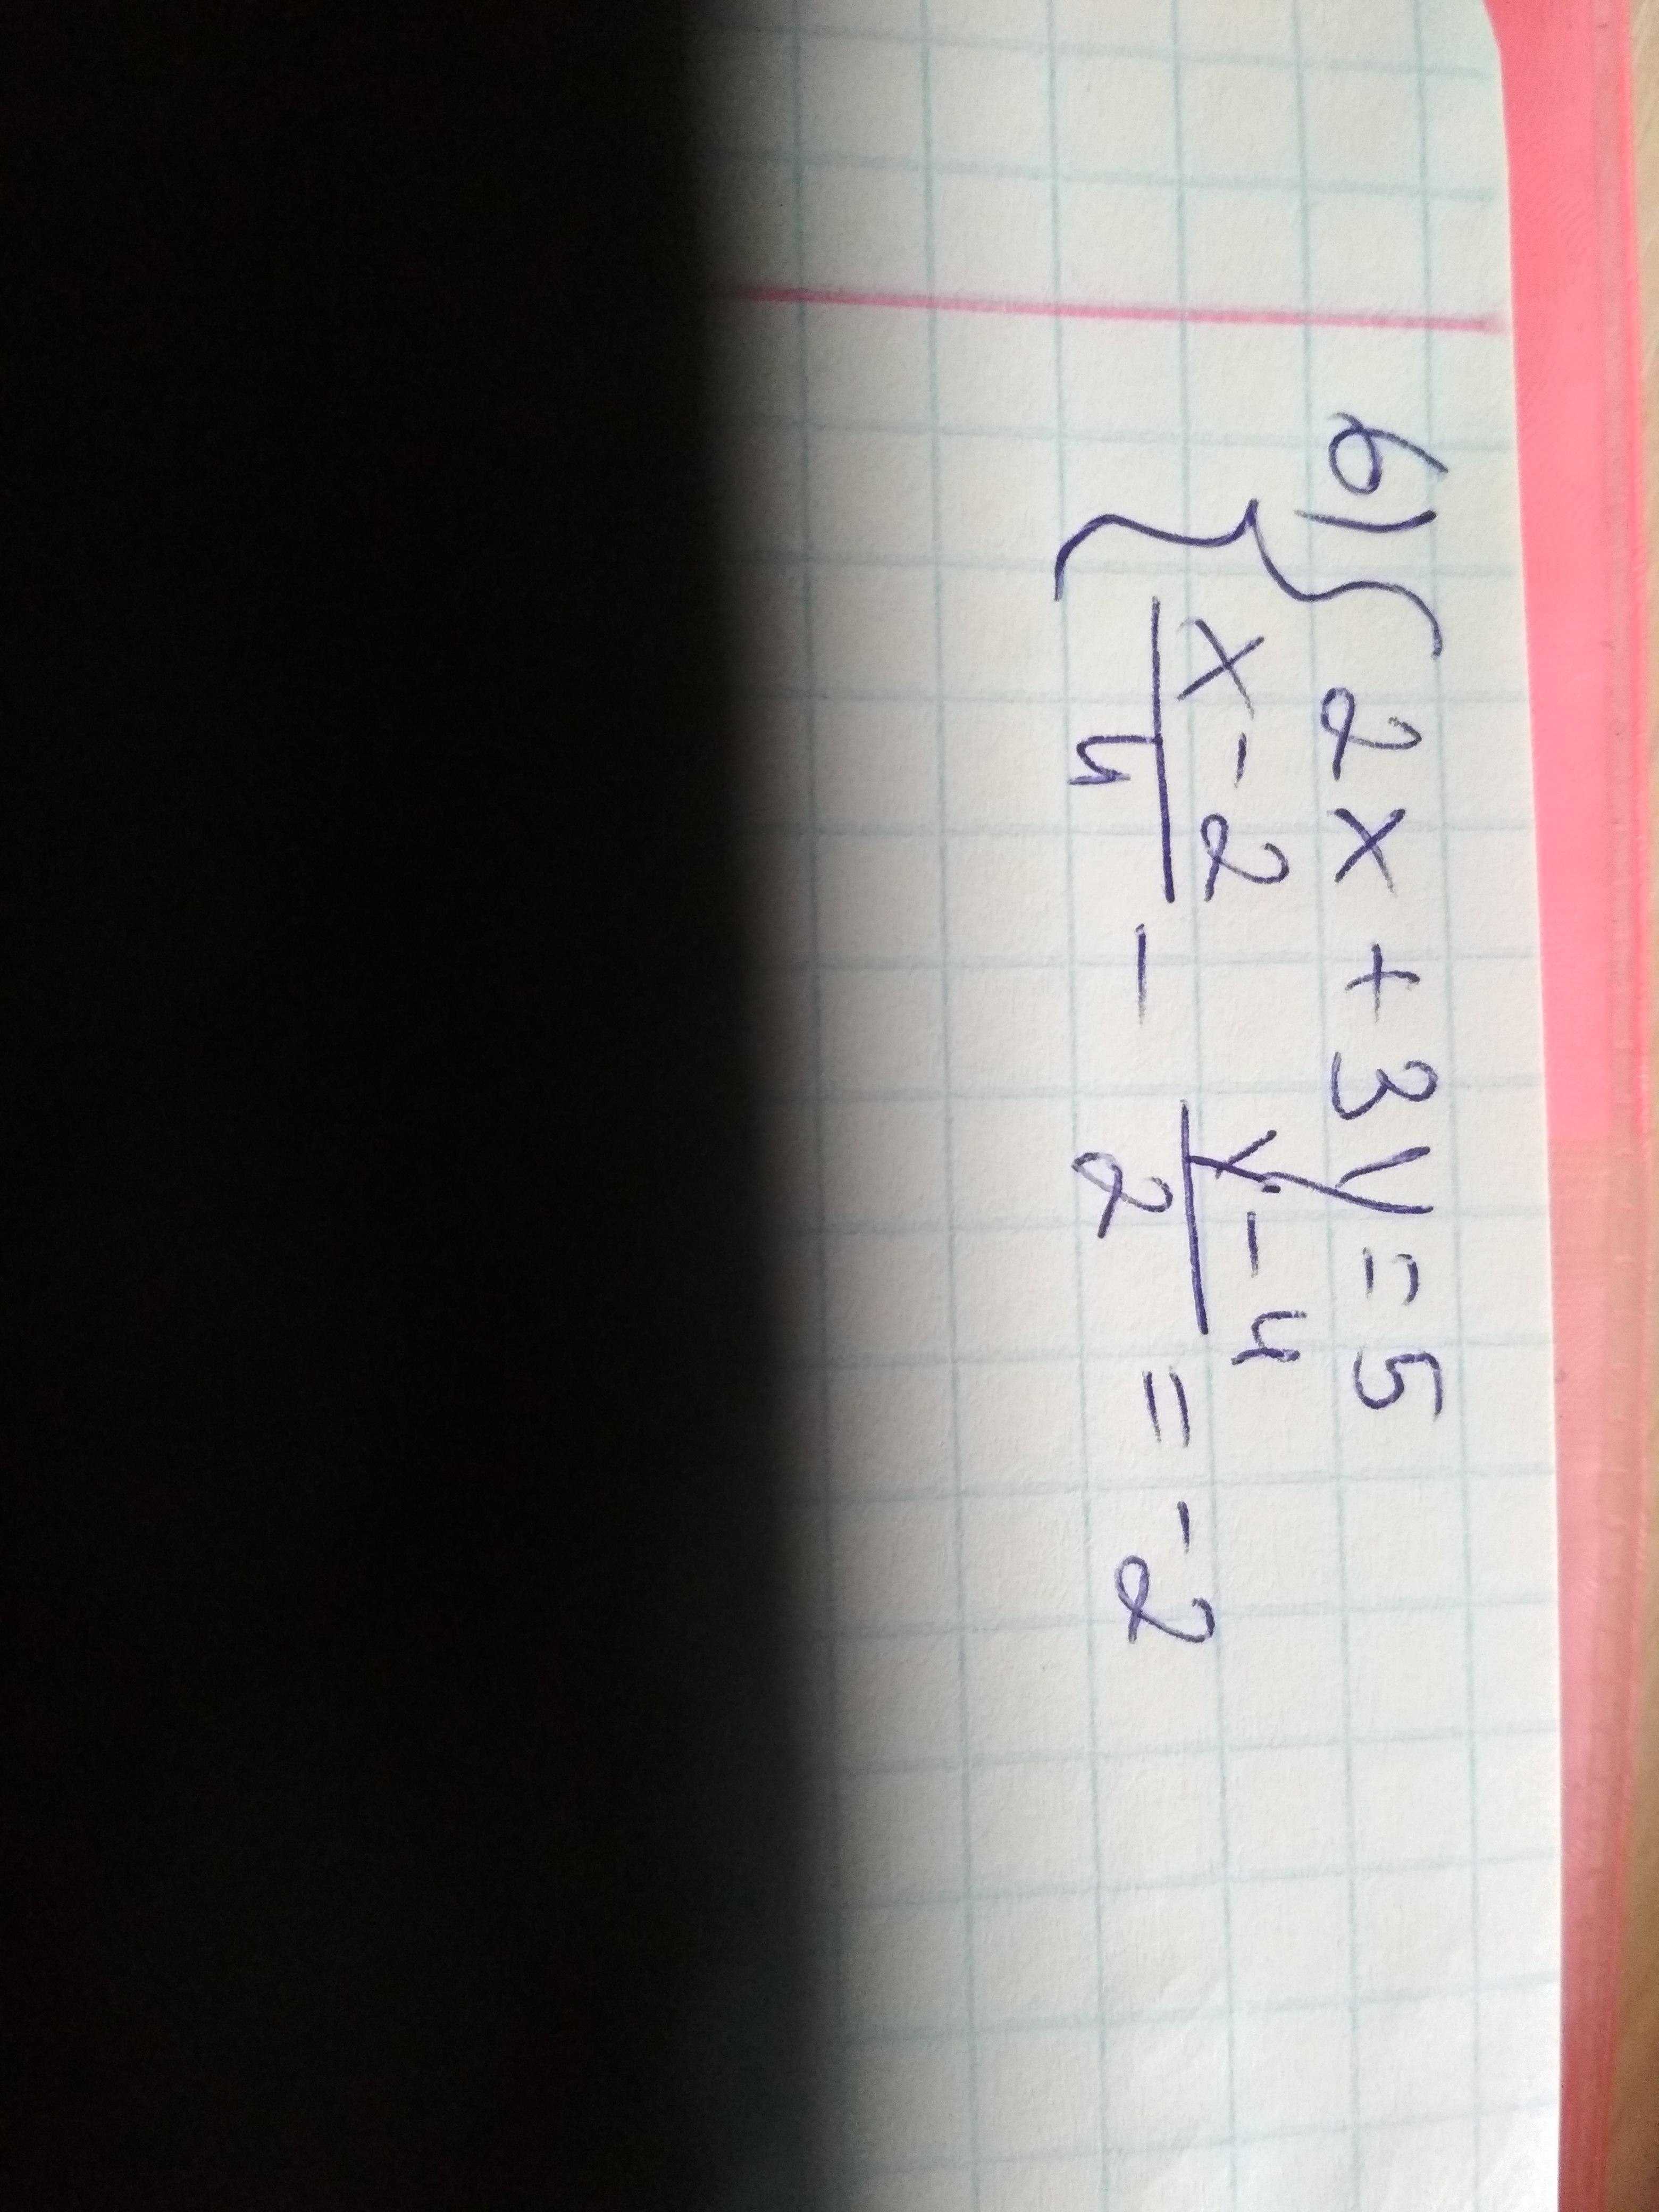 6) { 2x + 3y = 5
x - 2 / 4 - y - 4 / 2 = -2